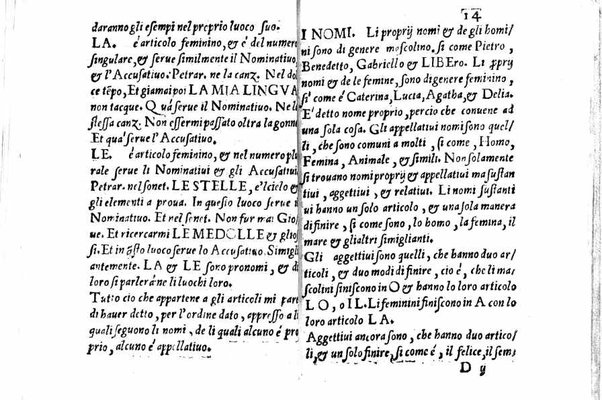 daranno gli esempi nel preprio luoco suo.
LA. é articolo feminino, & é del numero
singulare, & serue similmente il Nominatiuo,
& l'Accusatiuo: Petrar. ne la canz. Nel dol
ce tẽpo, Et giamai poi LA MIA LINGVA
non tacque. Quá serue il Nominatiuo. Ne la
stessa canz. Non essermi passato oltra la gonna
Et quá serue l'Accusatiuo.
LE. é articolo feminino, & nel numero plu
rale serue li Nominatiui & gli Accusatiui
Petrar. nel sonet. LE STELLE, e'l cielo &
gli elementi a proua. In questo luoco serue il
Nominatiuo. Et nel sonet. Non fur mai Gio
ue. Et ricercarmi LE MEDOLLE & gli os
si. Et in q̃sto luoco serue lo Accusatiuo. Simigl
antemente. LA & LE sono pronomi, & di
loro si parlerá ne li luochi loro.
Tutto cio che appartene a gli articoli mi par
di hauer detto, per l'ordine dato, appresso a li
quali seguono li nomi, de li quali alcuno é pro
prio, alcuno é appellatiuo.
14
I NOMI. Li proprij nomi & de gli homi
ni sono di genere mascolino. si come Pietro,
Benedetto, Gabriello & LIBEro. Li ꝓprij
nomi & de le femine, sono di genere feminino,
si' come é Caterina, Lucia, Agatha, & Delia.
E' detto nome proprio, percio che conuene ad
una sola cosa. Gli appellatiui nomi sono quel-
li, che sono comuni a molti, si come, Homo,
Femina, Animale, & simili. Non solamente
si trouano nomi proprij & appellatiui ma sustan
tiui, aggettiui, & relatiui. Li nomi sustanti
ui hanno un solo articolo, & una sola manera
di finire, si come sono, lo homo, la femina, il
mare & gli altri simiglianti.
Gli aggettiui sono quelli, che hanno due ar-
ticoli, & due modi di finire, cio é, che li ma-
scolini finiscono in O & hanno lo loro articolo
LO, o IL. li feminini finiscono in A con lo
loro articolo LA.
Aggettiui ancora sono, che hanno due artico
li, & un solo finire, si come é, il felice, il sem
D ij